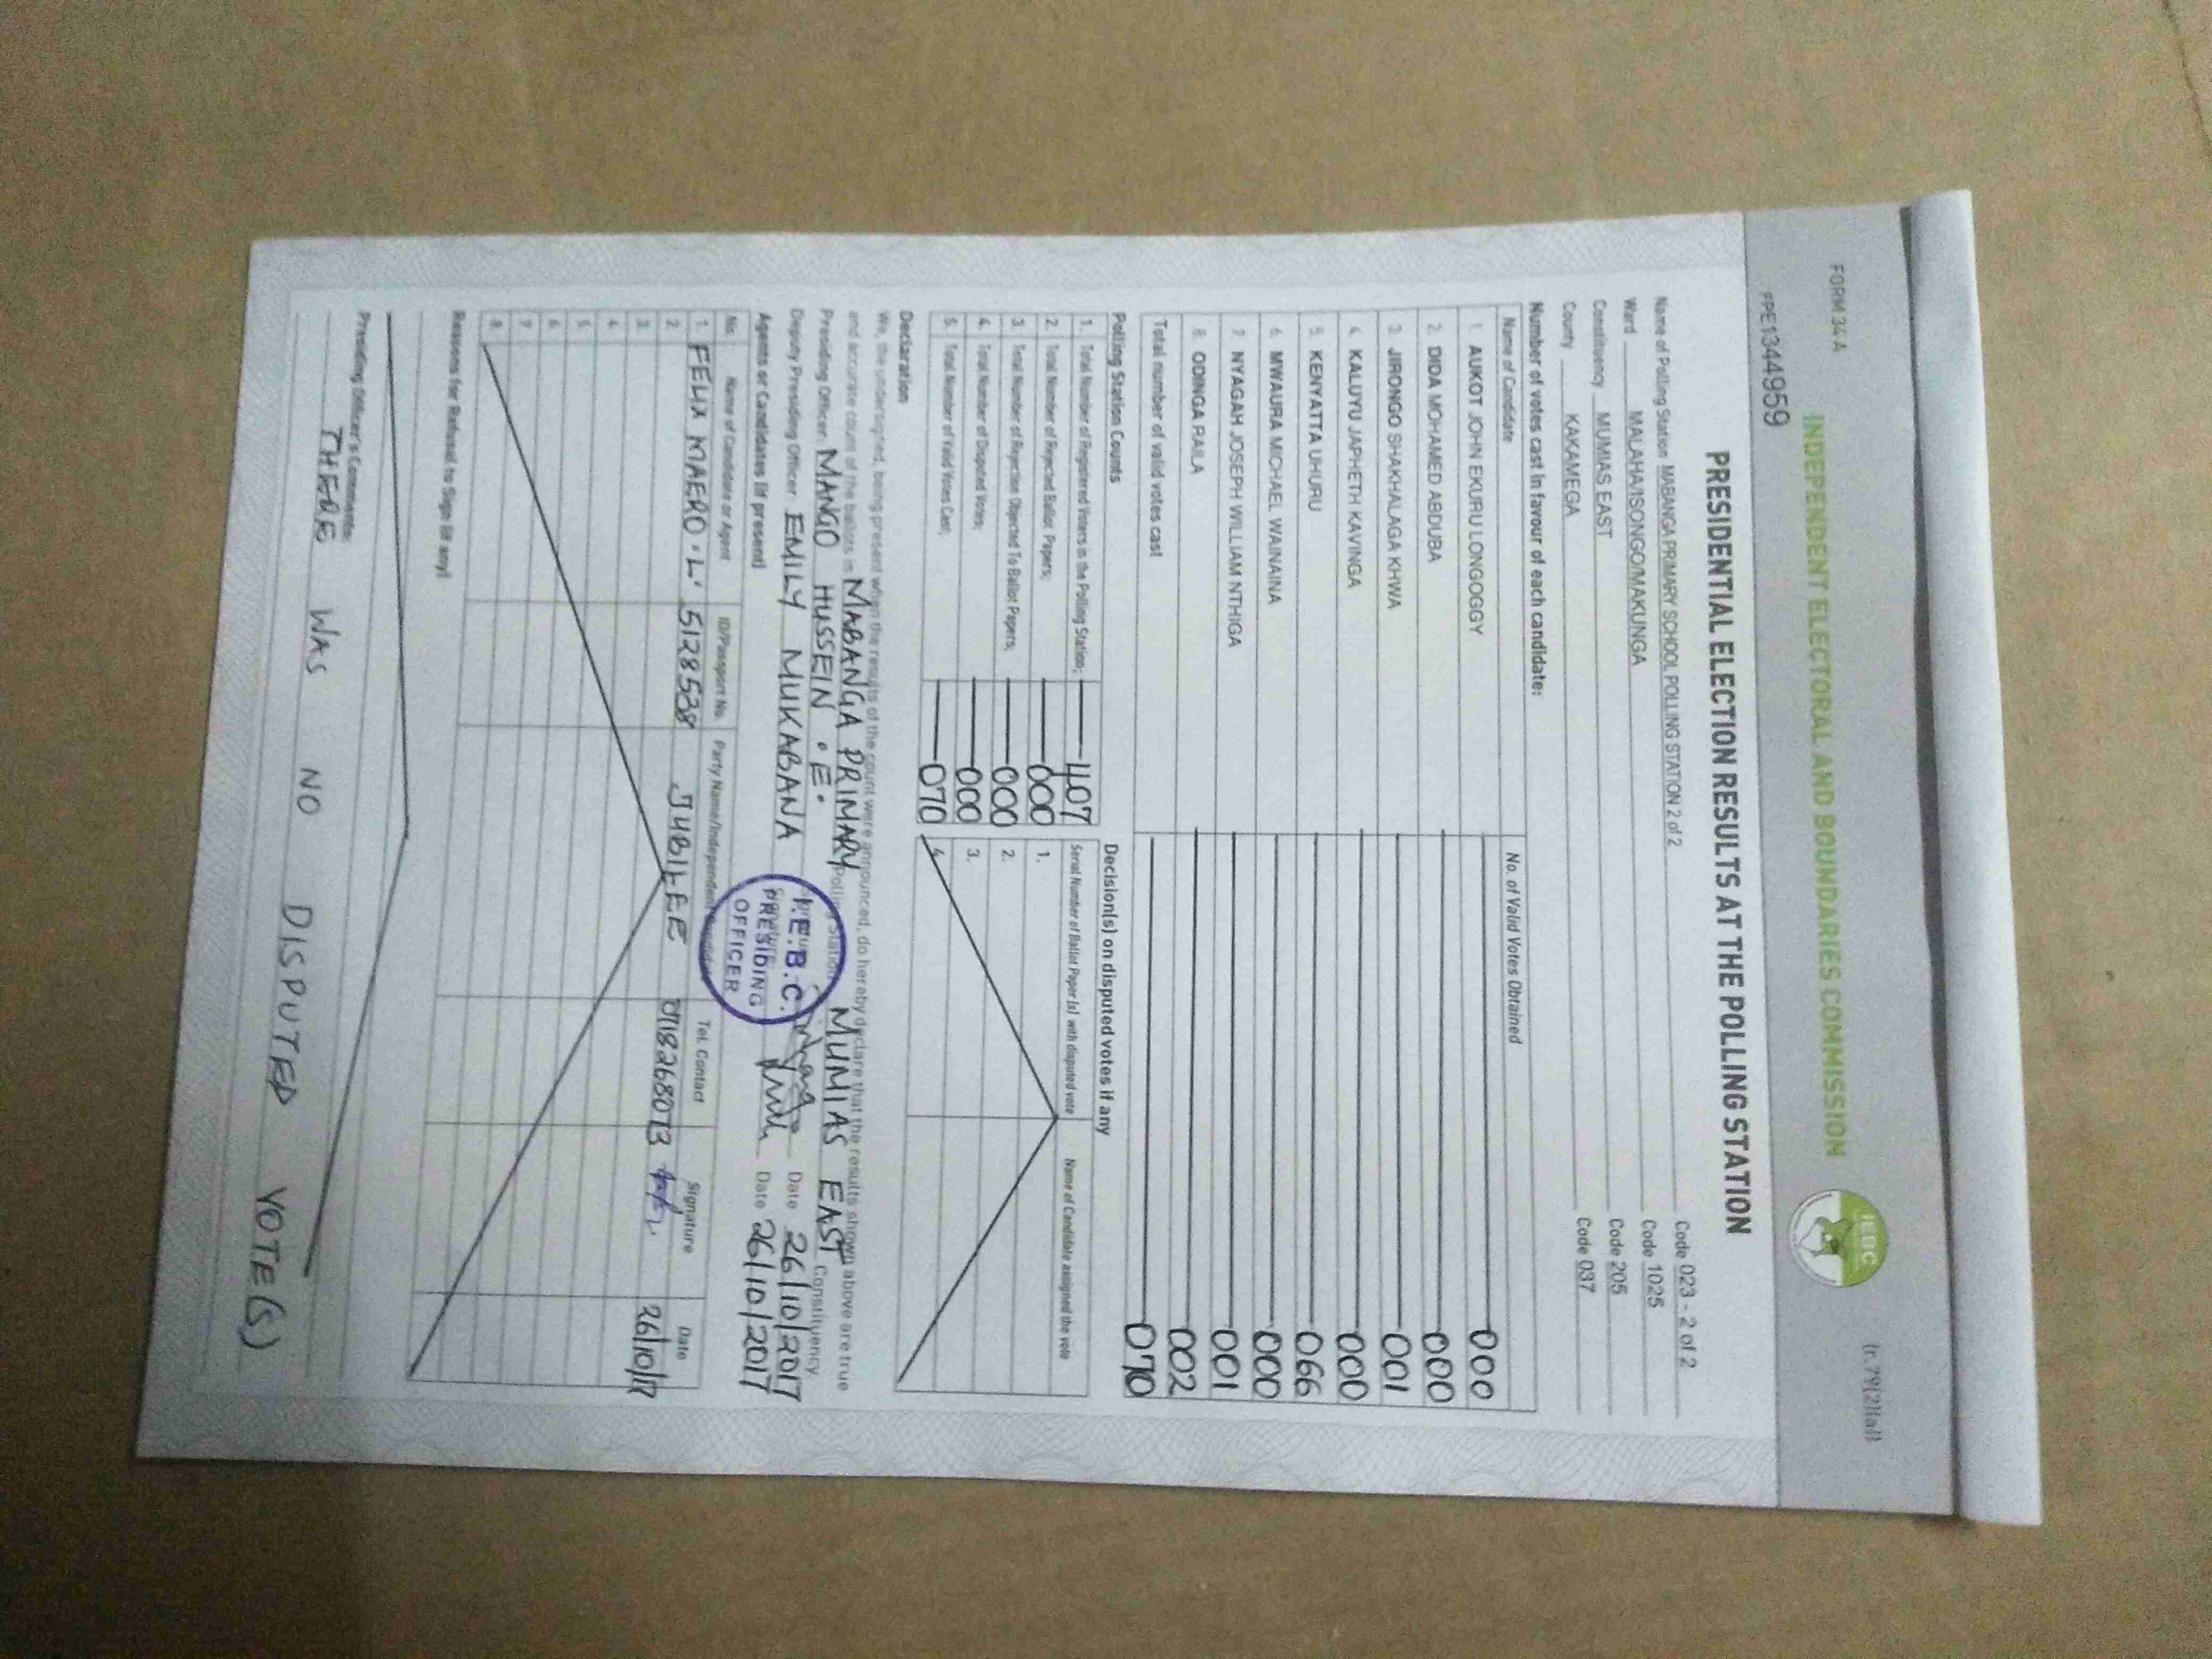 FORM 34A
(r.79(2)(a))
INDEPENDENT ELECTORAL AND BOUNDARIES COMMISSION
IEBC
FPE1344959
PRESIDENTIAL ELECTION RESULTS AT THE POLLING STATION
Name of Polling Station MABANGA PRIMARY SCHOOL POLLING STATION 2 of 2 Code 023 - 2 of 2
Ward MALAHA/ISONGO/MAKUNGA Code 1025
Constituency MUMIAS EAST Code 205
County KAKAMEGA Code 037
Number of votes cast in favour of each candidate:
Name of Candidate No. of Valid Votes Obtained
1. AUKOT JOHN EKURU LONGOGGY 000
2. DIDA MOHAMED ABDUBA 000
3. JIRONGO SHAKHALAGA KHWA 001
4. KALUYU JAPHETH KAVINGA 000
5. KENYATTA UHURU 066
6. MWAURA MICHAEL WAINAINA 000
7. NYAGAH JOSEPH WILLIAM NTHIGA 001
8. ODINGA RAILA 002
Total number of valid votes cast 070
Polling Station Counts
1. Total Number of Registered Voters in the Polling Station; 407
2. Total Number of Rejected Ballot Papers; 000
3. Total Number of Rejection Objected To Ballot Papers; 000
4. Total Number of Disputed Votes; 000
5. Total Number of Valid Votes Cast; 070
Decision(s) on disputed votes if any
Serial Number of Ballot Paper (s) with disputed vote Name of Candidate assigned the vote
1.
2.
3.
4.
Declaration
We, the undersigned, being present when the results of the count were announced, do hereby declare that the results shown above are true
and accurate count of the ballots in MABANGA PRIMARY Polling Station MUMIAS EAST Constituency
Presiding Officer: MANGO HUSSEIN .E. Date 26/10/2017
Deputy Presiding Officer: EMILY MUKABANA Date 26/10/2017
I.E.B.C.
PRESIDING
OFFICER
Agents or Candidates (if present)
No. Name of Candidate or Agent ID/Passport No. Party Name/Independent Candidate Tel. Contact Signature Date
1. FELIX MAERO .L. 5128538 JUBILEE 0718268073 26/10/17
2.
3.
4.
5.
6.
7.
8.
Reasons for Refusal to Sign (if any)
Presiding Officer's Comments:
THERE WAS NO DISPUTED VOTE(S)